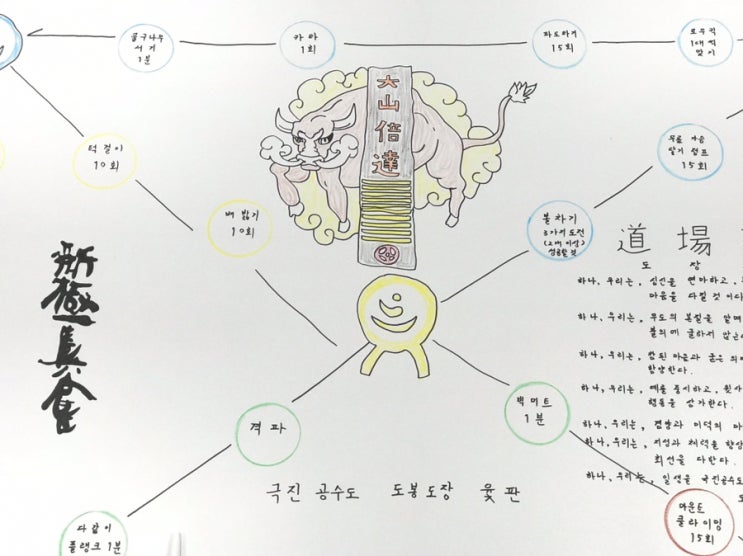 물구나무
서기
1분
카타
1회
파도타기
15회
로우킥
1대씩
맞기
턱걸이
10회
무릎 가슴
닿기 점프
15회
배 밟기
10회
볼차기
3가지 도전
(2개 이상)
성공할 것
大山倍達
新極真会
道場
도장
하나, 우리는, 심신을 연마하고,
마음을 다질 것이다
하나, 우리는, 무도의 본질을
불의에 굴하지 않는
하나, 우리는, 참된 마음과 굳은
함양한다.
하나, 우리는, 예를 중시하고, 윗사
행동을 삼가한다.
하나, 우리는, 겸양과 미덕의 마
하나, 우리는, 지성과 체력을 향상
최선을 다한다.
하나, 우리는, 일생을 극진공수도
격파
백머트
1분
극진 공수도 도봉도장 윷판
다같이
플랭크 1분
마운트
클라이밍
15회